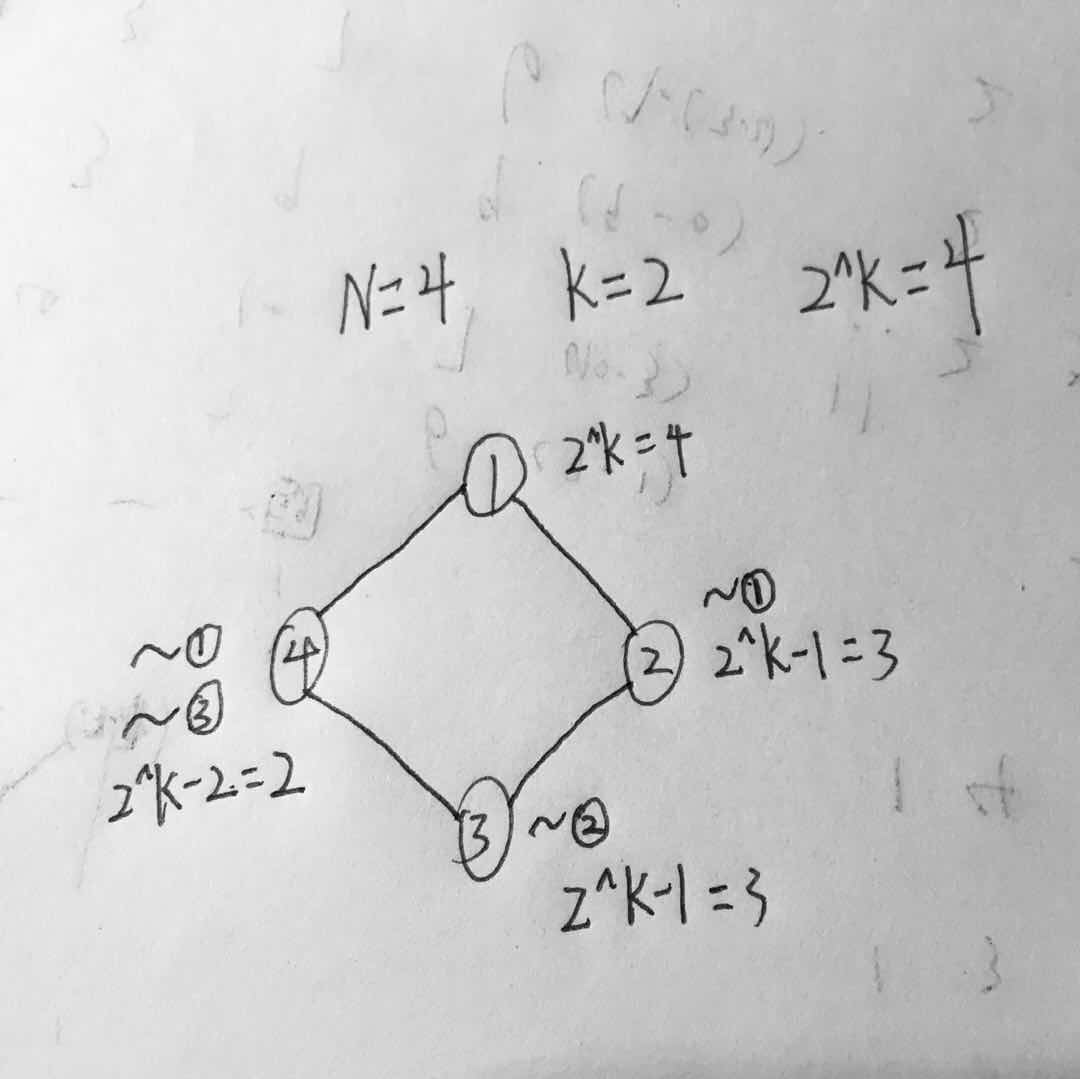 N=4 K=2 2^K=4
① 2^k=4
~①
~① ④ ② 2^K-1=3
~③
2^K-2=2
③ ~②
2^K-1=3